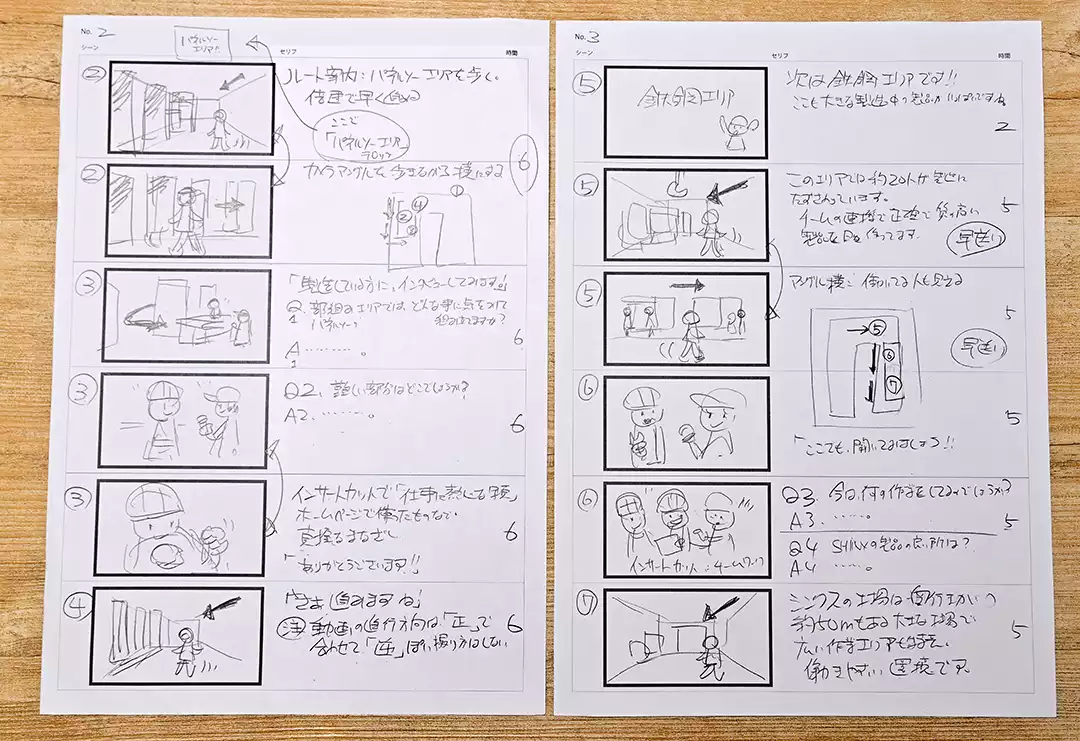 No. 2
シーン
セリフ
時間
パネルソー
エリア!!
②
ルート案内:パネルソーエリアを歩く。
倍速で早く進める
ここで
「パネルソーエリア」
テロップ
6
②
カメラアングルを歩きながら横にする
①
②
④
③
「製造をしている方に、インタビューしてみます。」
Q1 部組のエリアでは、どんな事に点をつけて
パネルソー
6
A1 ………。
③
Q2. 難しい部分はどこでしょうか?
A2. ……。
6
③
インサートカットで「仕事に熱い写真」
ホームページで使ったものなど
真撃なまなざし
6
「ありがとうございます!!」
④
「さあ進みますね」
注 動画の進行方向は「正」で
合わせて「逆」ぽい撮り方はしない
6
No. 3
シーン
セリフ
時間
⑤
鉄鋼エリア
次は鉄鋼エリアです!!
ここも大きな製造中の製品がいっぱいですね
2
⑤
このエリアでは約20人が製造に
たずさわっています。
チームの連携で正確で質の高い
製品を日々作ってます。
5
早送り
⑤
アングル横:働いてる人も見える
5
→⑤
⑥
⑦
早送り
⑥
5
「ここでも、聞いてみましょう!!
⑥
インサートカット:チームワーク
Q3. 今は何の作業をしてるのでしょうか?
A3. ……。
5
Q4 SHINXの製品の良い所は?
A4 ……。
⑦
シンクスの工場は奥行きが
約50mもある大きな工場で
広い作業エリアも確保。
働きやすい環境です
5